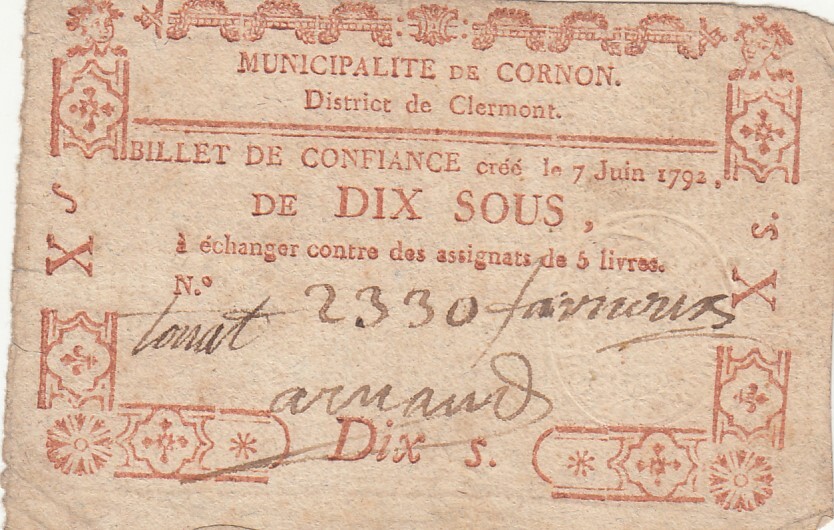 MUNICIPALITE DE CORNON.
District de Clermont.
BILLET DE CONFIANCE créé le 7 Juin 1792,
DE DIX SOUS,
à échanger contre des assignats de 5 livres.
X s
X s.
N.º 2330
arnaud
Dix s.